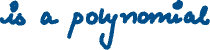 is a polynomial